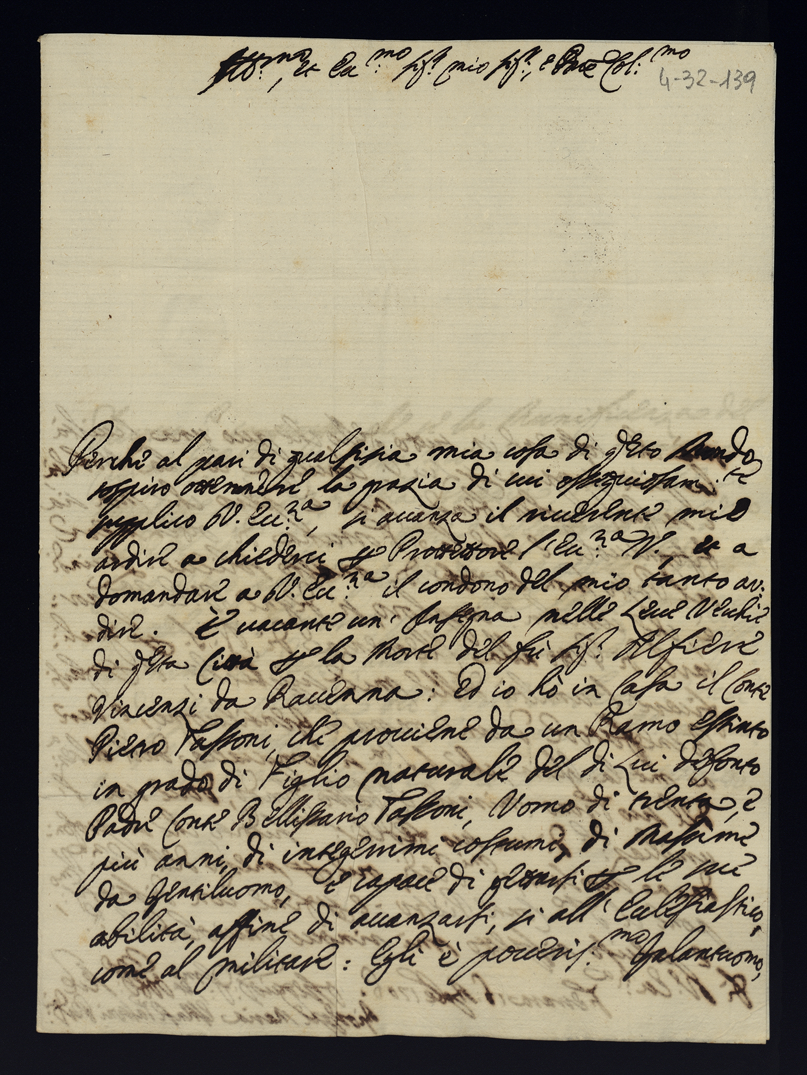 Ill:ma, et Ecc:mo Sig:r mio Sig:r, e Pne Col:mo
4-32-139
Perche al pari di qualsisia mia cosa di qsto Mondo
sospiro ottennere la grazia di cui ossequiosam:te
supplico V. Ecc:za, si avanza il riverente mio
ardire a chiederci p Protettore l'Ecc:za V., et a
domandare a V. Ecc:za il condono del mio tanto ar-
dire. È vacante un' Insegna nelle Leve Vechie
di qsta Città p la Morte del fù Sig:r Alfiere
Vincenzi da Ravenna: Ed io hò in Casa il Conte
Pietro Tassoni, che proviene da un Ramo estinto
in grado di Figlio naturale del di Lui defonto
Padre Conte Bellisario Tassoni, Uomo di trenta, e
più anni, di integerrimi costumi, di Massime
da Gentiluomo, e capace di gettarsi p le sue
abilità, affine di avanzarsi, si all' Eclesiastico,
come al militare: Egli è poveris:mo Galantuomo,